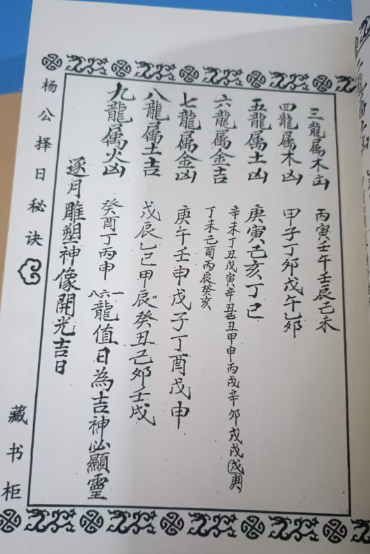 三龍属木凶 丙寅壬午壬辰己未
四龍属木凶 甲子丁卯戊午乙卯
五龍属土凶 庚寅己亥丁巳
六龍属金吉 辛未丁丑戊寅辛丑乙丑甲申丙戌辛卯戌戌
丁未己酉丙辰癸亥
七龍属金凶 庚午壬申戊子丁酉戊申
八龍属土吉 戊辰乙巳甲辰癸丑己卯壬戌
九龍属火凶 癸酉丁丙申
一六八龍值日為吉神必顯靈
逐月雕塑神像開光吉日
杨公择日秘诀
藏书柜